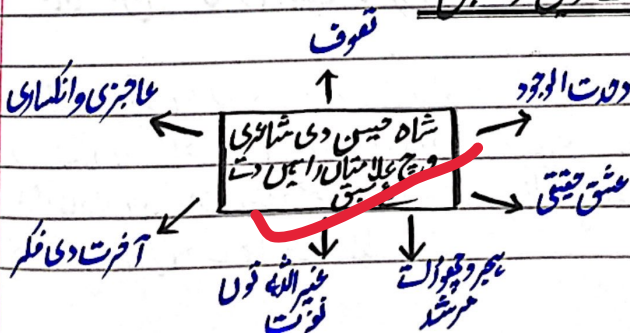 تصوف
عاجزی و انکساری
وحدت الوجود
شاہ حسین دی شاعری
وچ علامتاں راہیں دتے
سبق
عشق حقیقی
آخرت دی فکر
غیر اللہ توں
نفرت
ہجر و
مرشد